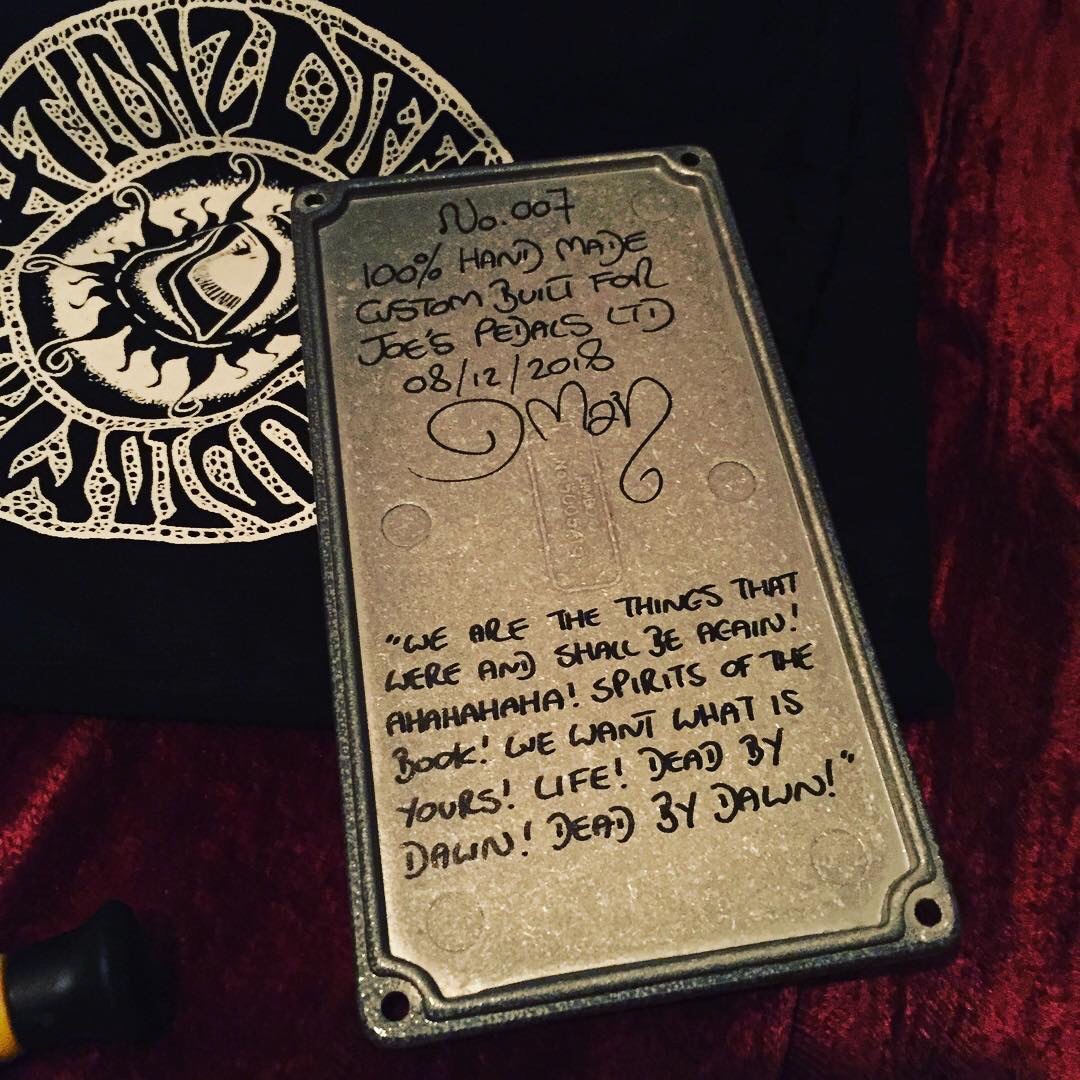 No. 007
100% HAND MADE
CUSTOM BUILT FOR
JOE'S PEDALS LTD
08/12/2018
"WE ARE THE THINGS THAT
WERE AND SHALL BE AGAIN!
AHAHAHAHA! SPIRITS OF THE
BOOK! WE WANT WHAT IS
YOURS! LIFE! DEAD BY
DAWN! DEAD BY DAWN!"